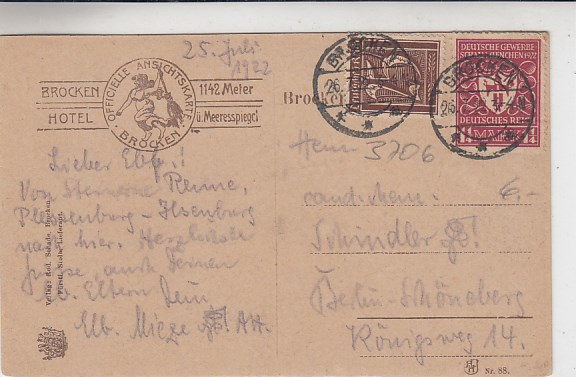 25. Juli
1922
BROCKEN
HOTEL
OFFICIELLE ANSICHTSKARTE
BROCKEN
1142 Meter
ü. Meeresspiegel
Brocken
BROCKEN
26.
BROCKEN
26.
DEUTSCHE GEWERBE
SCHAU MÜNCHEN 1922
DEUTSCHES REICH
1¼ MARK 1¼
Lieber
Von Steinerne Renne,
Plessenburg - Ilsenburg
nach hier. Herzlichste
Grüsse auch Deinen
Eltern Dein
Elb. Mieze AH.
Herrn 3706
cand. chem. 6.-
Schindler
Berlin-Schöneberg
Königsweg 14.
Verlag: Rud. Schade, Brocken
Fürstl. Stolb. Lieferant.
Nr. 88.